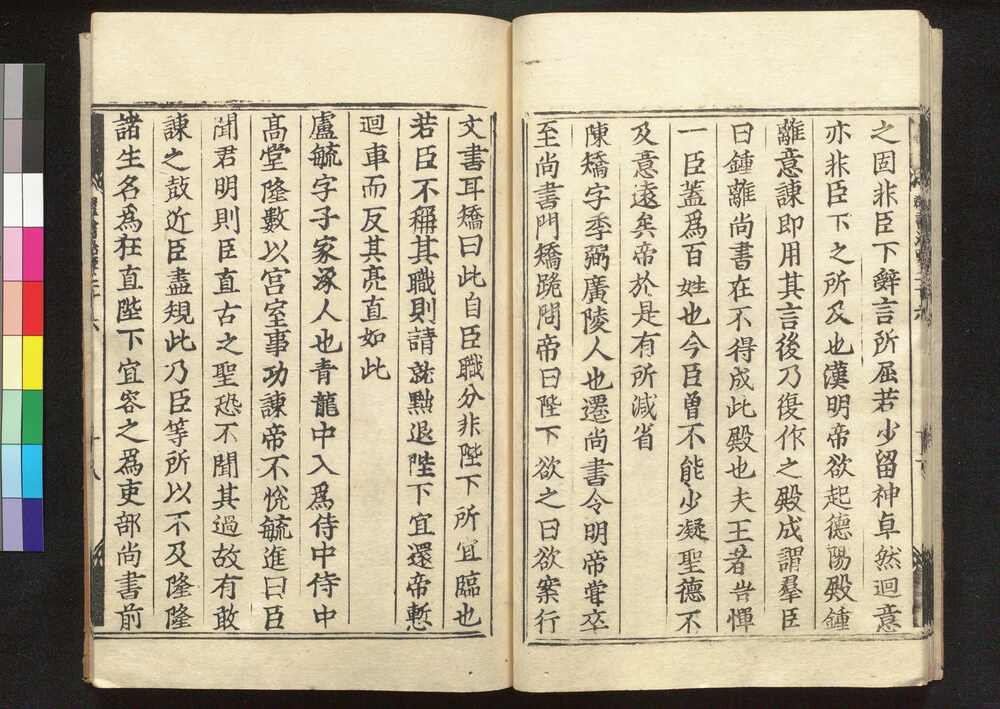 之固非臣下辭言所屈若少留神卓然迴意
亦非臣下之所及也漢明帝欲起德陽殿鍾
離意諫即用其言後乃復作之殿成謂羣臣
曰鍾離尚書在不得成此殿也夫王者豈憚
一臣蓋爲百姓也今臣曾不能少凝聖德不
及意遠矣帝於是有所減省
陳矯字季弼廣陵人也遷尚書令明帝甞卒
至尚書門矯跪問帝曰陛下欲之曰欲案行
文書耳矯曰此自臣職分非陛下所宜臨也
若臣不稱其職則請就黜退陛下宜還帝慙
迴車而反其亮直如此
盧毓字子家涿人也青龍中入爲侍中侍中
高堂隆數以宫室事功諫帝不悅毓進曰臣
聞君明則臣直古之聖恐不聞其過故有敢
諫之鼓近臣盡規此乃臣等所以不及隆隆
諸生名爲狂直陛下宜容之爲吏部尚書前
十八